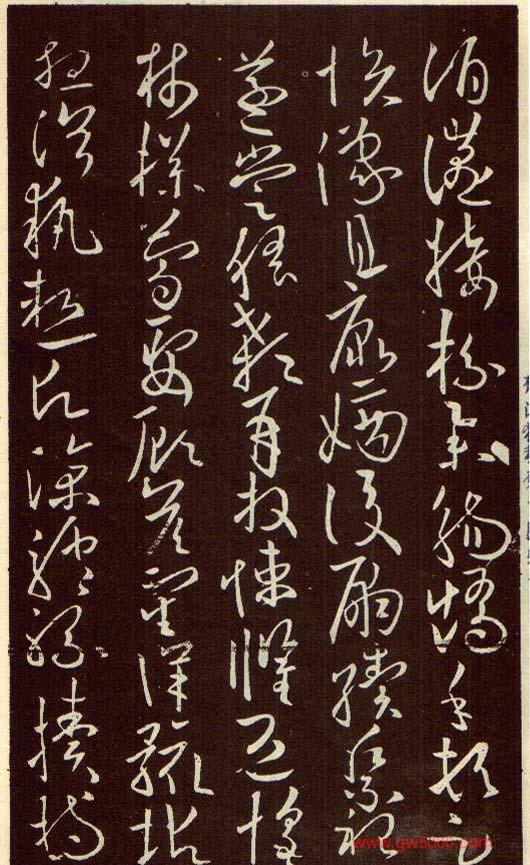 酒讌接杯舉觴矯手頓足
悅豫且康嫡後嗣續祭祀
蒸嘗稽顙再拜悚懼恐惶
牋牒簡要顧答審詳骸垢
想浴執熱願涼驢騾犢特